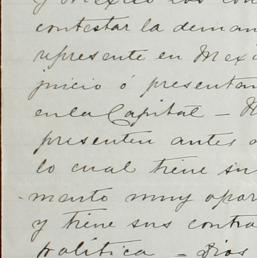 y México los con
contestar la deman
represente en Mexi
juicio ó presentan
en la Capital —
presenten antes
lo cual tiene su
mento muy opor
y tiene sus contra
política — Dios